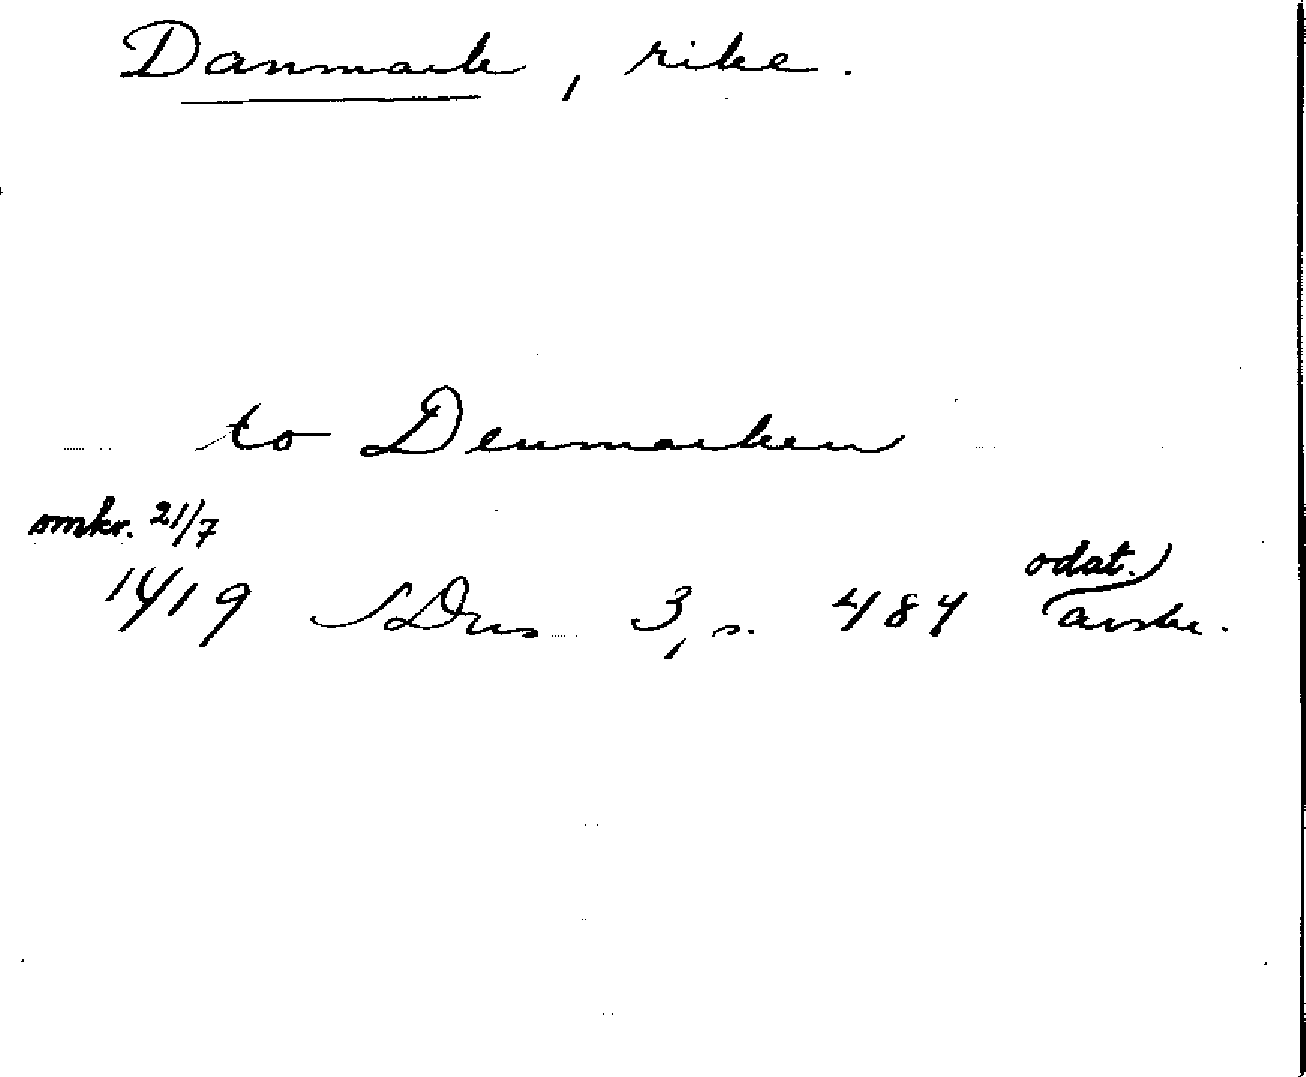 Danmark, rike.
to Denmarken
omkr. 21/7
1419 SDns 3, s. 484 odat. avskr.